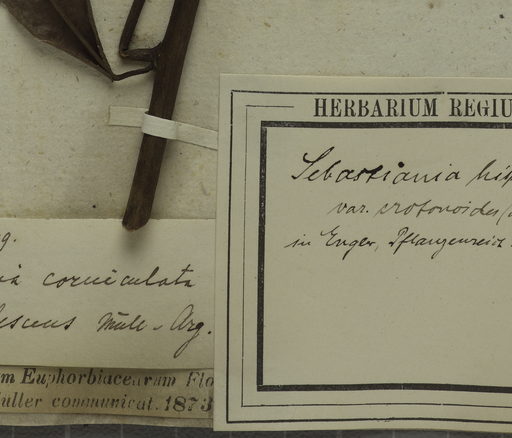 HERBARIUM REGIU
Sebastiania his
var. crotonoides
in Engler, Pflanzenreich
g.
ia corniculata
escens Müll-Arg.
m Euphorbiacearum Flo
uller communicat. 1873